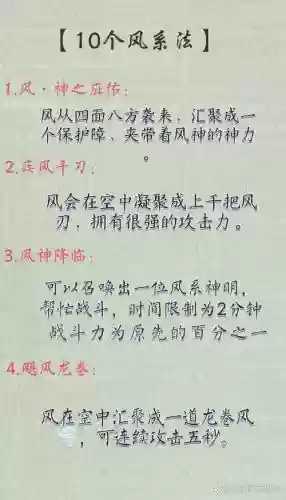 【10个风系法】
1.风·神之庇佑:
风从四面八方袭来,汇聚成一
个保护障、夹带着风神的神力
。
2.疾风千刃:
风会在空中凝聚成上千把风
刃,拥有很强的攻击力。
3.风神降临:
可以召唤出一位风系神明,
帮忙战斗,时间限制为2分钟
战斗力为原先的百分之一
4.飓风龙卷:
风在空中汇聚成一道龙卷风
,可连续攻击五秒。